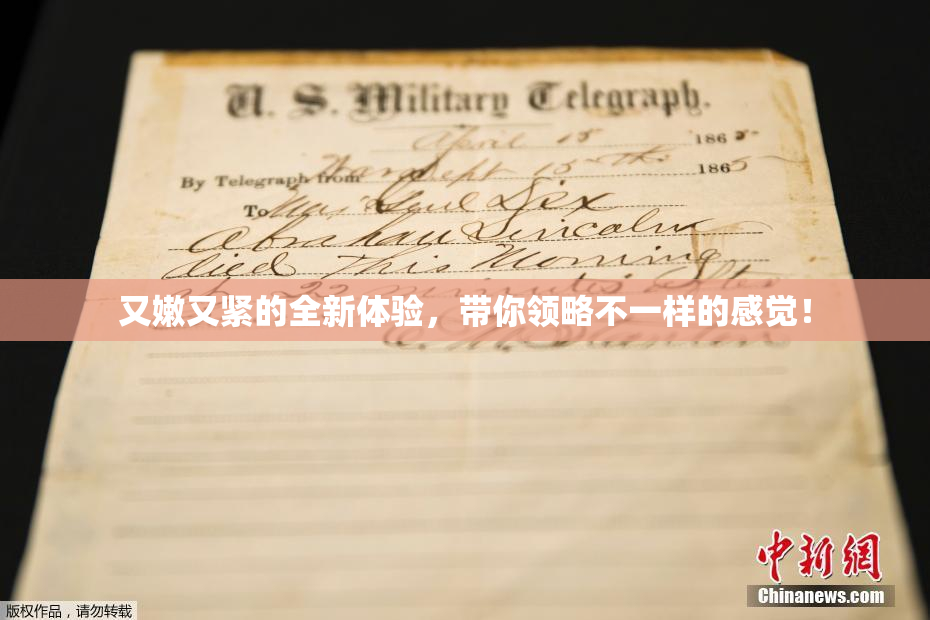 U. S. Military Telegraph.
April 15 1865
By Telegraph from War Dept 15th 1865
To Maj Genl Dix
Abraham Lincoln
died This Morning
at 22 minutes after
又嫩又紧的全新体验，带你领略不一样的感觉！
E. M. Stanton
中新网
Chinanews.com
版权作品，请勿转载